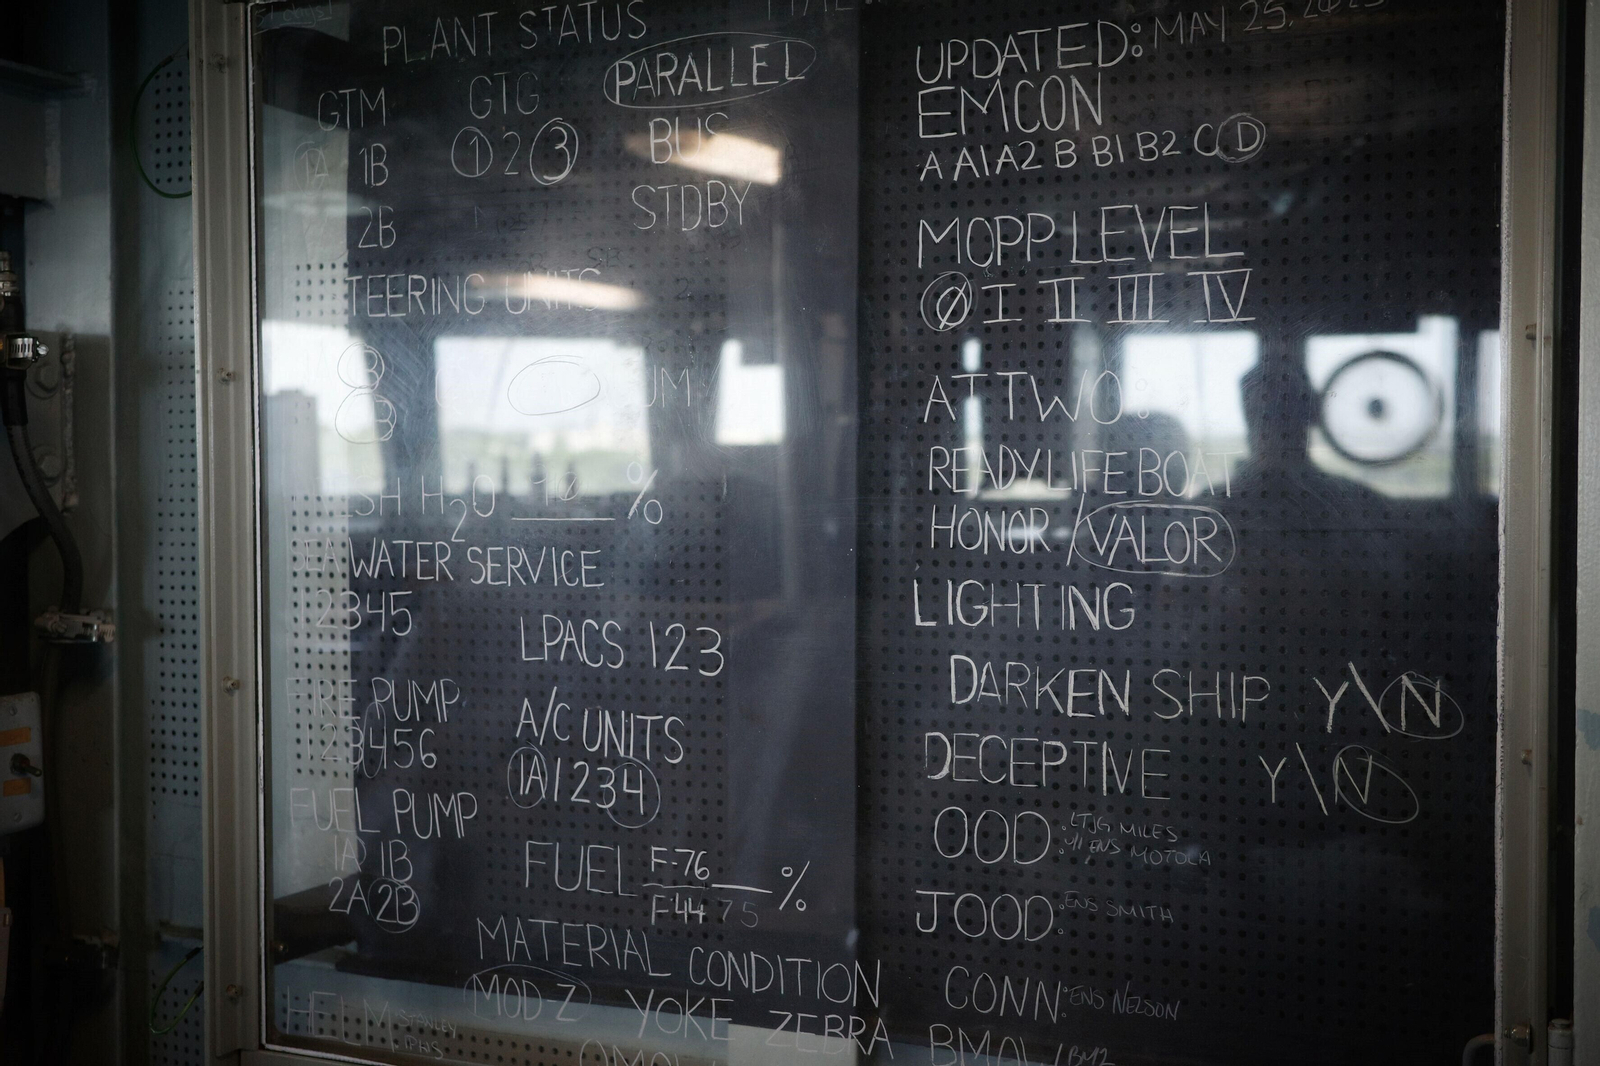 PLANT STATUS
GTM
1A 1B
2B
GTG
1 2 3
PARALLEL
BUS
STDBY
TEERING UNITS
UM
SH H2O %
EA WATER SERVICE
12345
LPACS 123
FIRE PUMP
123456
A/C UNITS
1A 1 2 3 4
FUEL PUMP
1A 1B
2A 2B
FUEL F-76 %
F-44 75
MATERIAL CONDITION
MOD-Z YOKE ZEBRA
HELM: STANLEY
UPDATED: MAY 25,
EMCON
A A1 A2 B B1 B2 C D
MOPP LEVEL
Ø I II III IV
AT TWO:
READY LIFE BOAT
HONOR / VALOR
LIGHTING
DARKEN SHIP Y\N
DECEPTIVE Y\N
OOD: LTJG MILES
ENS MOTOLA
JOOD: ENS SMITH
CONN: ENS NELSON
BM2